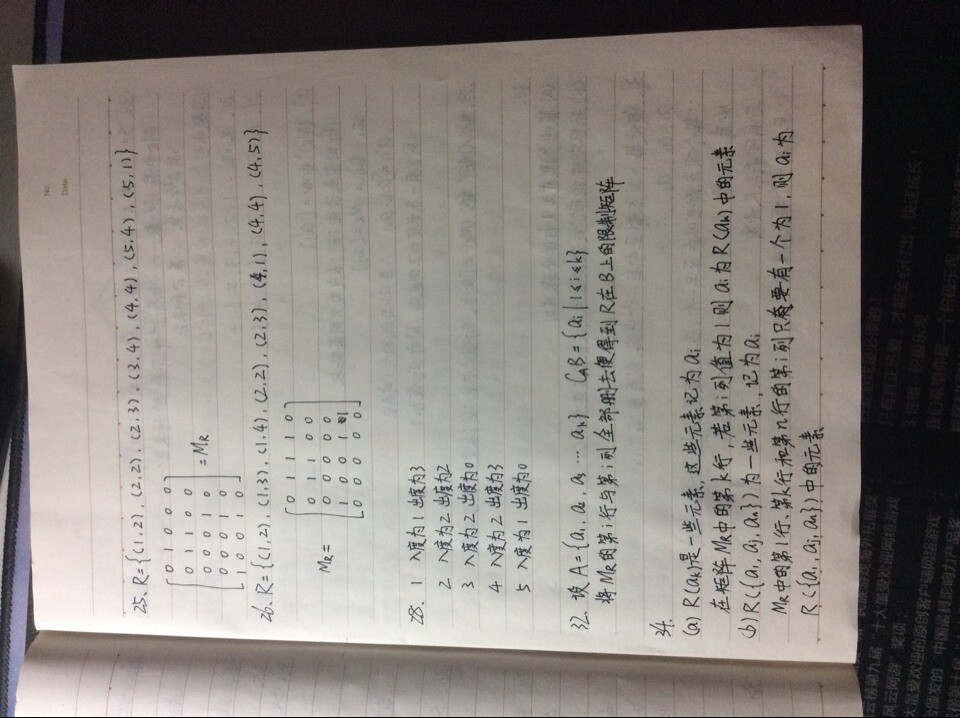 No.
Date
25、R={(1,2)、(2,2)、(2,3)、(3,4)、(4,4)、(5,4)、(5,1)}
0 1 0 0 0
0 1 1 0 0
0 0 0 1 0 =MR
0 0 0 1 0
1 0 0 1 0
26、R={(1,2)、(1,3)、(1,4)、(2,2)、(2,3)、(4,1)、(4,4)、(4,5)}
0 1 1 1 0
0 1 1 0 0
MR= 0 0 0 0 0
1 0 0 1 1
0 0 0 0 0
28. 1 入度为1 出度为3
2 入度为2 出度为2
3 入度为2 出度为0
4 入度为2 出度为3
5 入度为1 出度为0
32. 设A={a1, a2, a3 … ak} CAB={ai|1≤i≤k}
将MR的第i行与第i列全部删去便得到R在B上的限制矩阵
34.
(a) R(ak)是一些元素,这些元素记为ai
在矩阵MR中的第k行,若第i列值为1则ai为R(ak)中的元素
(b) R({a1, aj, an})为一些元素,记为ai
MR中的第1行、第k行和第n行的第i列只要有一个为1,则ai为
R({a1, aj, an})中的元素
民族游戏海外拓展奖
云榜第九届“十大最受欢迎网络游戏
风云网游”奖项;
大最受欢迎的原创客户端网络游戏
颁发的“中国最具影响力产品奖”
只有真正热爱,才能全心付出,快速成长!
3.性格-积极乐观